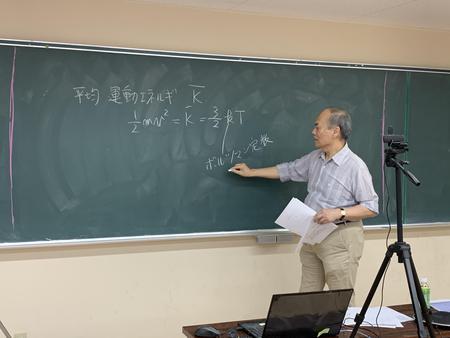 平均 運動エネルギ K̅
1/2 mv² = K̅ = 3/2 kT
ボルツマン定数